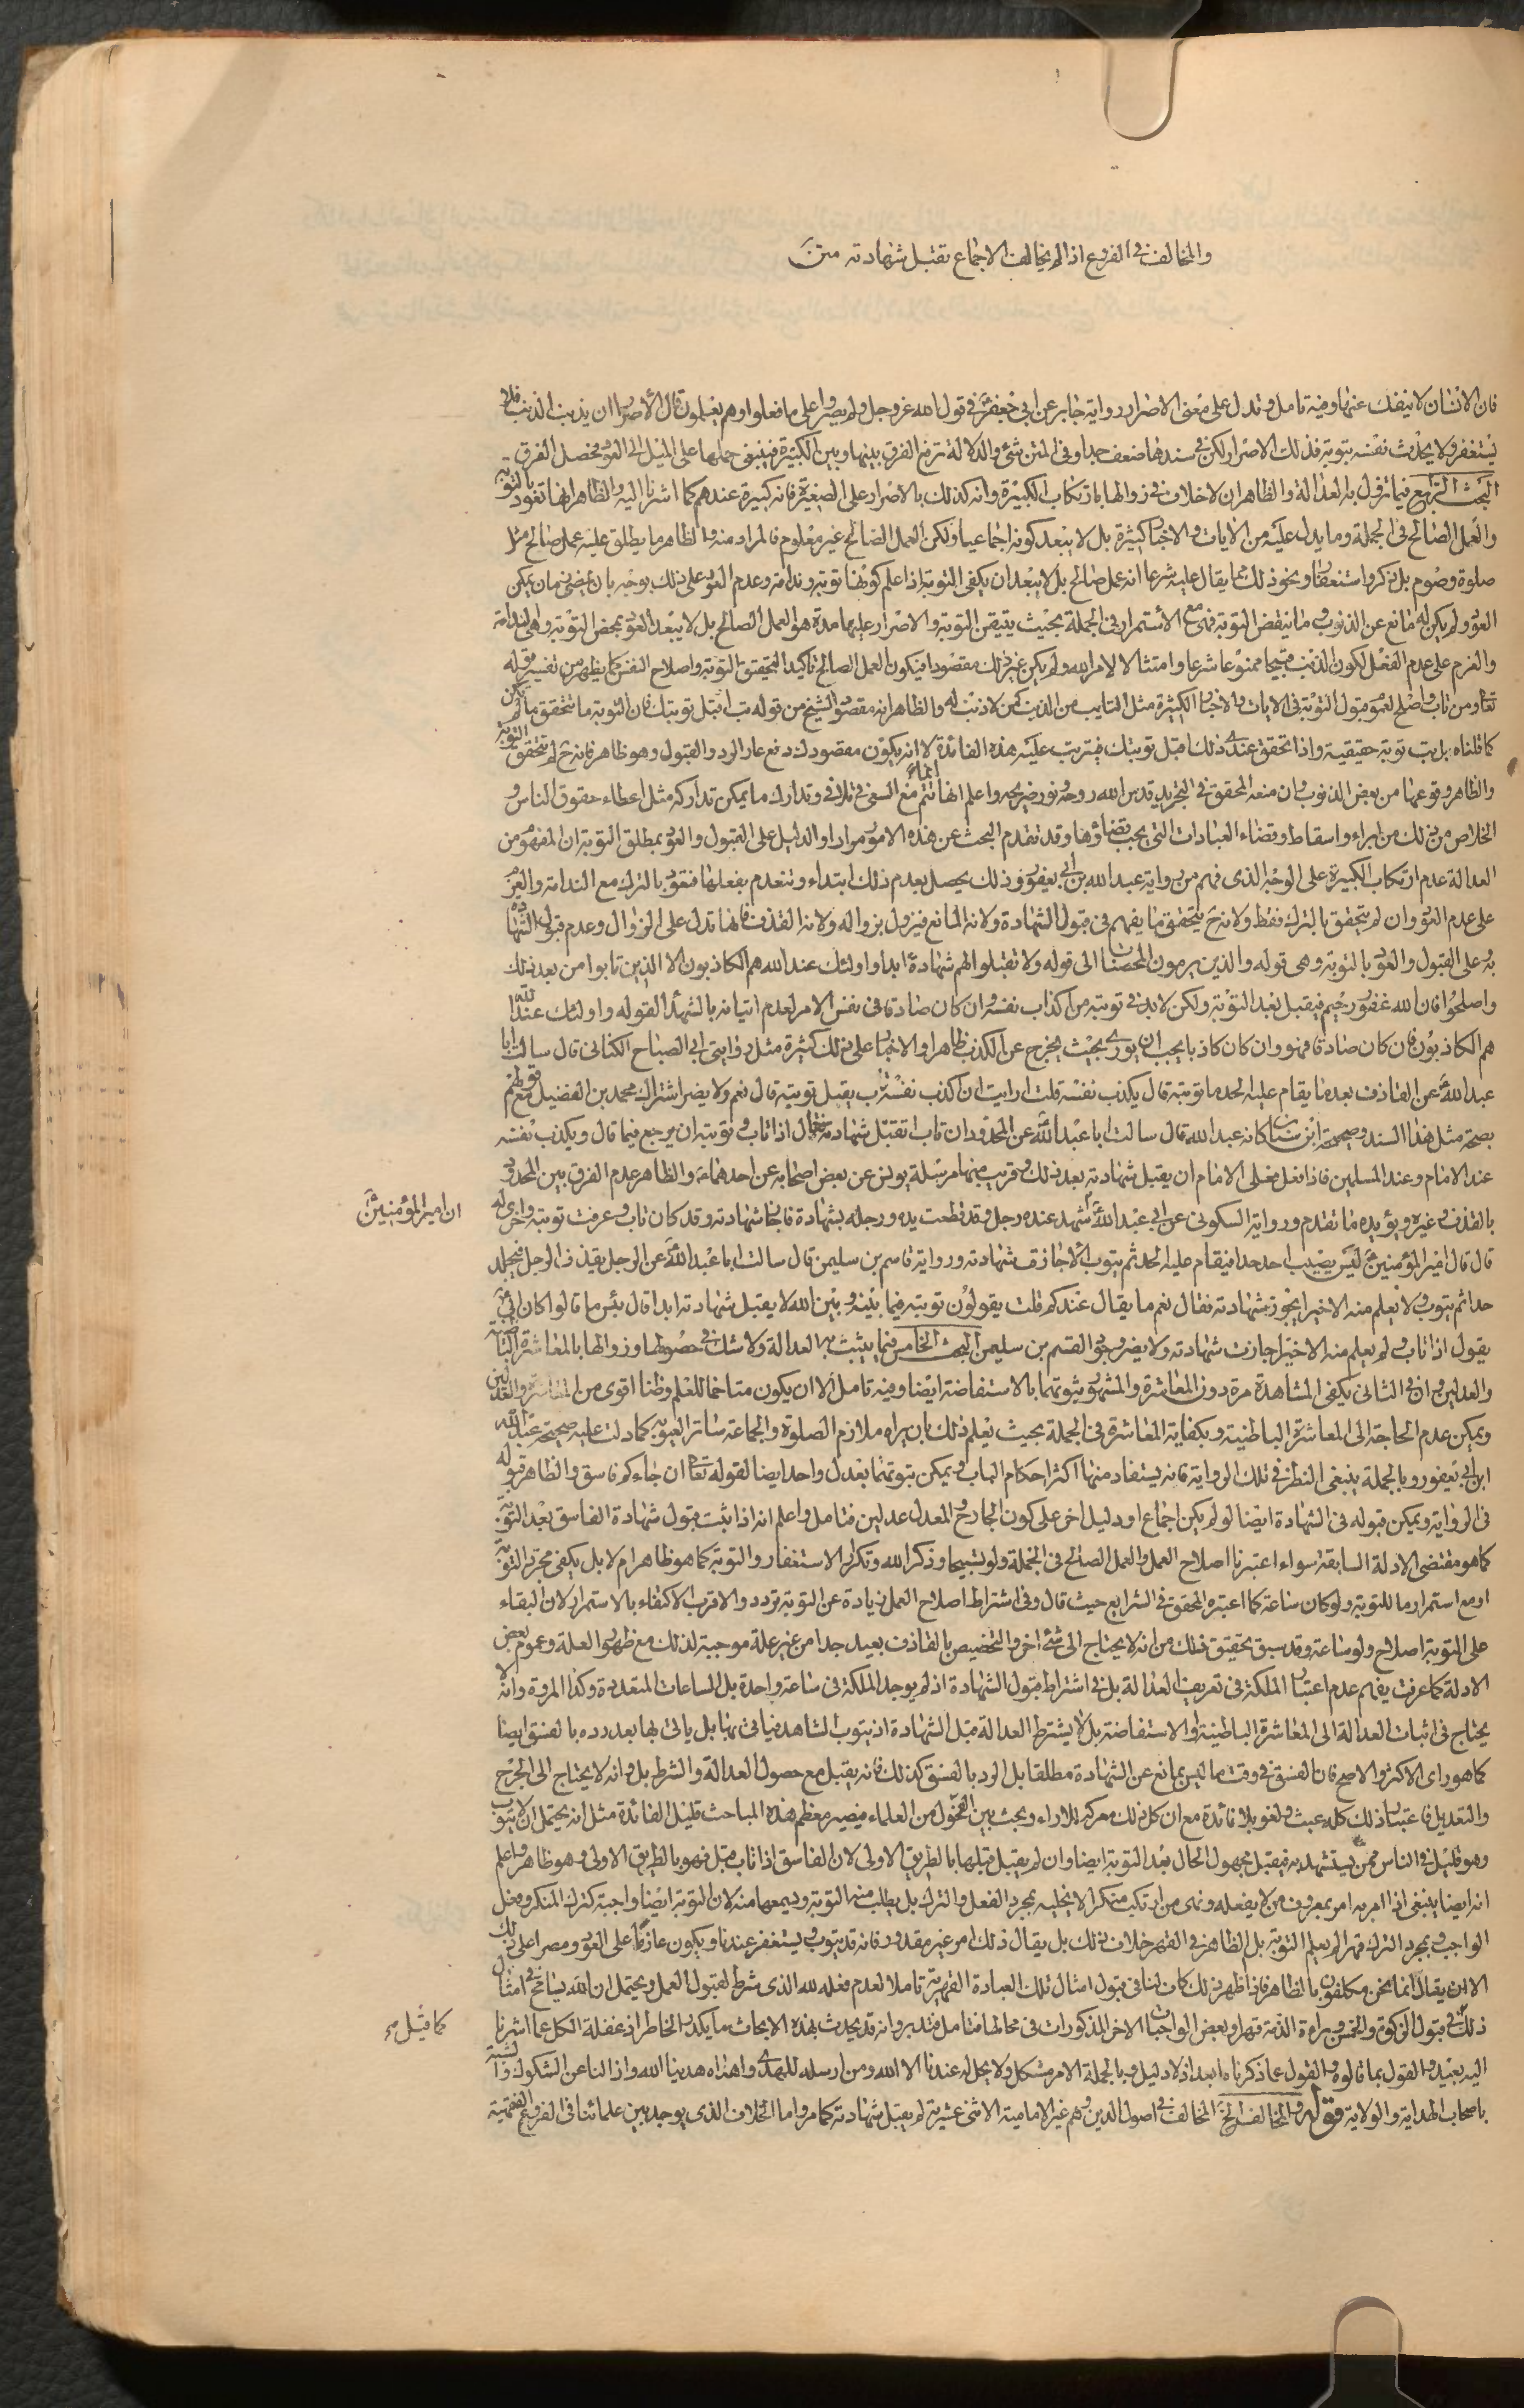 والمخالف في الفروع اذا لم يخالف الاجماع تقبل شهادته متن
فان الانسان لا ينفك عنها وفيه تامل وتدل على معنى الاصرار رواية جابر عن ابي جعفر في قول الله عز وجل ولم يصروا على ما فعلوا وهم يعلمون قال الاصرار ان يذنب الذنب فلا
يستغفر ولا يحدث نفسه بتوبة فذلك الاصرار ولكن في سندها ضعف جدا وفي المتن شئ والدلالة ترفع الفرق بينها وبين الكبيرة فينبغي حملها على الميل الى العود فحصل الفرق
البحث الرابع فيما تزول به العدالة والظاهر ان لا خلاف في زوالها بارتكاب الكبيرة وانه كذلك بالاصرار على الصغيرة فانه كبيرة عندهم كما اشرنا اليه والظاهر انها تعود بالتوبة
والعمل الصالح في الجملة وما يدل عليه من الايات والاخبار كثيرة بل لا يبعد كونه اجماعيا ولكن العمل الصالح غير معلوم فالمراد منه والظاهر ما يطلق عليه عمل صالح مثل
صلوة وصوم بل ذكر واستغفار ونحو ذلك مما يقال عليه شرعا انه عمل صالح بل لا يبعد ان يكفي التوبة اذا علم كونها توبة وندامة وعدم العود على ذلك بوجه بان يمضي زمان يمكن
العود ولم يكن له مانع عن الذنوب وما ينقض التوبة فهي مع الاستمرار في الجملة بحيث يتيقن التوبة والاصرار عليها مدة هو العمل الصالح بل لا يبعد العود بمحض التوبة وهي الندامة
والعزم على عدم الفعل لكون الذنب قبيحا ممنوعا شرعا وامتثالا لامر الله ولم يكن غير ذلك مقصودا فيكون العمل الصالح تاكيدا لتحقق التوبة واصلاح النفس كما يظهر من تفسير قوله
تعالى ومن تاب واصلح لعموم قبول التوبة في الايات والاخبار الكثيرة مثل التايب من الذنب كمن لا ذنب له والظاهر انه مقصود الشيخ من قوله تب اقبل توبتك فان التوبة ما تتحقق ما لم يكن
كما قلناه بل تب توبة حقيقية واذا تحقق عندي ذلك اقبل توبتك فيترتب عليه هذه الفائدة لا انه يكون مقصودك دفع عار الرد والقبول وهو ظاهر فانه ح لم تتحقق التوبة
والظاهر وقوعها من بعض الذنوب وان منعه المحقق في التجريد قدس الله روحه ونور ضريحه واعلم انها انما تتم مع السعي في تلافي وتدارك ما يمكن تداركه مثل اعطاء حقوق الناس و
الخلاص من ذلك من ابراء واسقاط وقضاء العبادات التي يجب قضاؤها وقد تقدم البحث عن هذه الامور مرارا والدليل على القبول والعود بمطلق التوبة ان المفهوم من
العدالة عدم ارتكاب الكبيرة على الوجه الذي فهم من رواية عبد الله بن ابي يعفور وذلك يحصل بعدم ذلك ابتداء وتنعدم بفعلها فتعود بالترك مع الندامة والعزم
على عدم العود وان لم يتحقق بالترك فقط ولانه ح يتحقق ما يفهم في قبول الشهادة ولانه المانع فيزول بزواله ولانه القذف فانها تدل على الزوال وعدم قبول الشهادة
به وعلى القبول والعود بالتوبة وهي قوله والذين يرمون المحصنات الى قوله ولا تقبلوا لهم شهادة ابدا واولئك عند الله هم الكاذبون الا الذين تابوا من بعد ذلك
واصلحوا فان الله غفور رحيم فيقبل بعد التوبة ولكن لا بد في توبته من اكذاب نفسه وان كان صادقا في نفس الامر لعدم اتيانه بالشهداء لقوله واولئك عند الله
هم الكاذبون فان كان صادقا فهو وان كان كاذبا يجب ان يوري بحيث يخرج عن الكذب ظاهرا والاخبار على ذلك كثيرة مثل روايتي ابي الصباح الكناني قال سالت ابا
عبد الله عن القاذف بعد ما يقام عليه الحد ما توبته قال يكذب نفسه قلت ارايت ان اكذب نفسه وتاب يقبل توبته قال نعم ولا يضر اشتراك محمد بن الفضيل مع قولهم
بصحة مثل هذا السند وصحيحة ابن سنان كانه عبد الله قال سالت ابا عبد الله عن المحدود ان تاب اتقبل شهادته فقال اذا تاب وتوبته ان يرجع فيما قال ويكذب نفسه
عند الامام وعند المسلمين فاذا فعل فعلى الامام ان يقبل شهادته بعد ذلك وقريب منها مرسلة يونس عن بعض اصحابه عن احدهما والظاهر عدم الفرق بين المحدود
بالقذف وغيره ويؤيده ما تقدم ورواية السكوني عن ابي عبد الله شهد عنده رجل وقد قطعت يده ورجله بشهادة فاجاز شهادته وقد كان تاب وعرفت توبته واخرى له
ان امير المؤمنين
قال قال امير المؤمنين ليس يصيب احد حدا فيقام عليه الحد ثم يتوب الا جازت شهادته ورواية قاسم بن سليمن قال سالت ابا عبد الله عن الرجل يقذف الرجل فيجلد
حدا ثم يتوب ولا يعلم منه الا خيرا يجوز شهادته فقال نعم ما يقال عندكم قلت يقولون توبته فيما بينه وبين الله لا يقبل شهادته ابدا قال بئس ما قالوا كان ابي
يقول اذا تاب ولم يعلم منه الا خيرا جازت شهادته ولا يضر وجود القسم بن سليمن البحث الخامس فيما يثبت به العدالة ولا شك في حصولها وزوالها بالمعاشرة الباطنية
والعدلين وان في الثاني يكفي المشاهدة مرة دون المعاشرة والمشهور ثبوتهما بالاستفاضة ايضا وفيه تامل الا ان يكون متاخما للعلم وظنا اقوى من المعاشرة والعدلين
ويمكن عدم الحاجة الى المعاشرة الباطنية ويكفاية المعاشرة في الجملة بحيث يعلم ذلك بان يراه ملازم الصلوة والجماعة ساتر العيوبه كما دلت عليه صحيحة عبد الله
ابن ابي يعفور وبالجملة ينبغي النظر في تلك الرواية فانه يستفاد منها اكثر احكام الباب ويمكن ثبوتهما بعدل واحد ايضا لقوله تعالى ان جاءكم فاسق والظاهر قبوله
في الرواية ويمكن قبوله في الشهادة ايضا لو لم يكن اجماع او دليل اخر على كون الجارح والمعدل عدلين فتامل واعلم انه اذا ثبت قبول شهادة الفاسق بعد التوبة
كما هو مقتضى الادلة السابقة سواء اعتبرنا اصلاح العمل والعمل الصالح في الجملة ولو تسبيحا وذكر الله وتكرار الاستغفار والتوبة كما هو ظاهر ام لا بل يكفي مجرد التوبة
او مع استمرار ما للتوبة ولو كان ساعة كما اعتبره المحقق في الشرايع حيث قال وفي اشتراط اصلاح العمل زيادة عن التوبة تردد والاقرب الاكتفاء بالاستمرار لان البقاء
على التوبة اصلاح ولو ساعة وقد سبق تحقيق ذلك من انه لا يحتاج الى شئ اخر والتخصيص بالقاذف بعيد جدا من غير علة موجبة لذلك مع ظهور العلة وعموم بعض
الادلة كما عرفت يفهم عدم اعتبار الملكة في تعريف العدالة بل في اشتراط قبول الشهادة اذ لم يوجد الملكة في ساعة واحدة بل الساعات المتعددة وكذا المروة وانه لا
يحتاج في اثبات العدالة الى المعاشرة الباطنية والاستفاضة بل لا يشترط العدالة قبل الشهادة اذ يتوب الشاهد فياتي بها بل ياتي بها بعد رده بالفسق ايضا
كما هو راى الاكثر والاصح فان الفسق في وقت ما ليس بمانع عن الشهادة مطلقا بل الرد بالفسق كذلك فانه يقبل مع حصول العدالة والشرط بل وانه لا يحتاج الى الجرح
والتعديل فاعتبار ذلك كله عبث ولغو بلا فائدة مع ان كل ذلك معركة للاراء وبحث بين الفحول من العلماء فيصير معظم هذه المباحث قليل الفائدة مثل انه يحتمل ان لا يتوب
وهو قليل في الناس فمن يستشهد به فيقبل مجهول الحال بعد التوبة ايضا وان لم يقبل قبلها بالطريق الاولى لان الفاسق اذا تاب قبل فهو بالطريق الاولى وهو ظاهر واعلم
انه ايضا ينبغي اذا امر به امر بمعروف من لا يفعله ونهى من ارتكب منكرا لا يخليه بمجرد الفعل والترك بل يطلب منه التوبة ويسمعها منه لان التوبة ايضا واجبة كترك المنكر وفعل
الواجب وبمجرد الترك قهرا لم يعلم التوبة بل الظاهر في القهر خلاف ذلك بل يقال ذلك امر غير مقدور فانه قد يتوب ويستغفر عندنا ويكون عازما على العود ومصرا على ذلك
الا ان يقال انما نحن مكلفون بالظاهر فاذا ظهر ذلك كان لنا في قبول امثال تلك العبادة القهرية تاملا لعدم فعله لله الذي شرط لقبول العمل ويحتمل ان الله يسامح في امثال
ذلك في قبول الزكوة والخمس وبراءة الذمة قهرا وبعض الواجبات الاخر المذكورات في محالها فتامل فتدبر وانه قد يحدث بهذه الابحاث ما يكدر الخاطر اذ غفلة الكل عما اشرنا
كما قيل صح
اليه بعيد والقول بما قالوه والقول عما ذكرناه ابعد اذ لا دليل وبالجملة الامر مشكل ولا يحل له عندنا الا الله ومن ارسله للهدى واهداه هدينا الله واذ النا عن الشكوك والشبه
باصحاب الهداية والولاية قوله والمخالف الخ المخالف في اصول الدين وهم غير الامامية الاثنى عشرية لم يقبل شهادته كما مر واما الخلاف الذي يوجد بين علمائنا في الفروع الفقهية